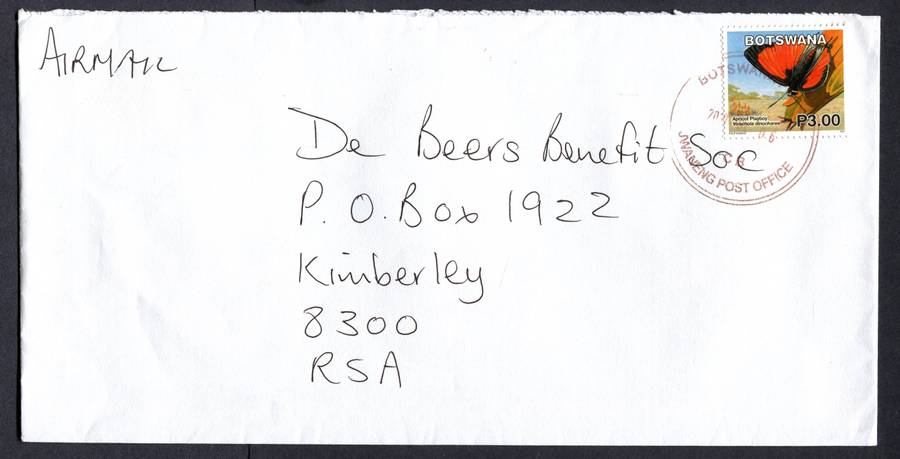 AIRMAIL
BOTSWANA
Apricot Playboy
P3.00
BOTSWANA
JWANENG POST OFFICE
De Beers Benefit Soc
P.O.Box 1922
Kimberley
8300
RSA